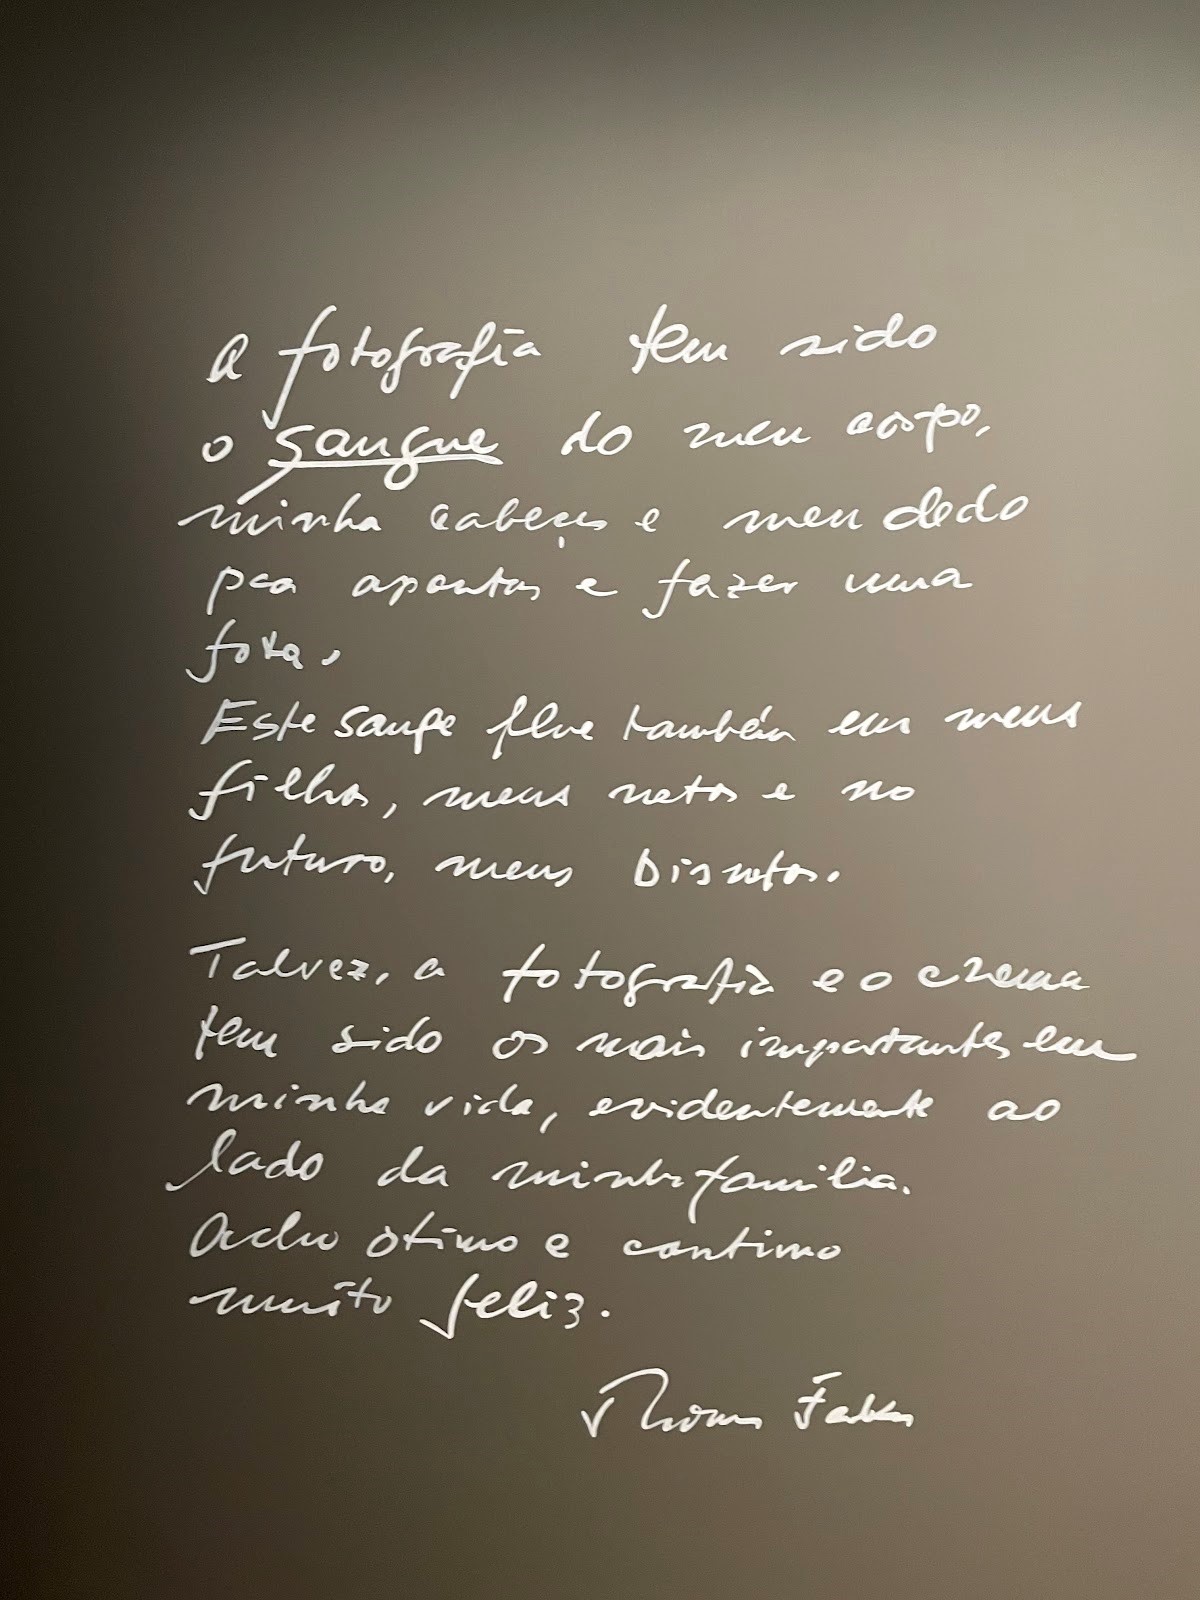 A fotografia tem sido
o sangue do meu corpo,
minha cabeça e meu dedo
pra apontar e fazer uma
foto.
Este sangue flue também em meus
filhos, meus netos e no
futuro, meus Bisnetos.
Talvez, a fotografia e o cinema
tem sido os mais importantes em
minha vida, evidentemente ao
lado da minha familia.
Acho ótimo e continuo
muito feliz.
Thomas Farkas